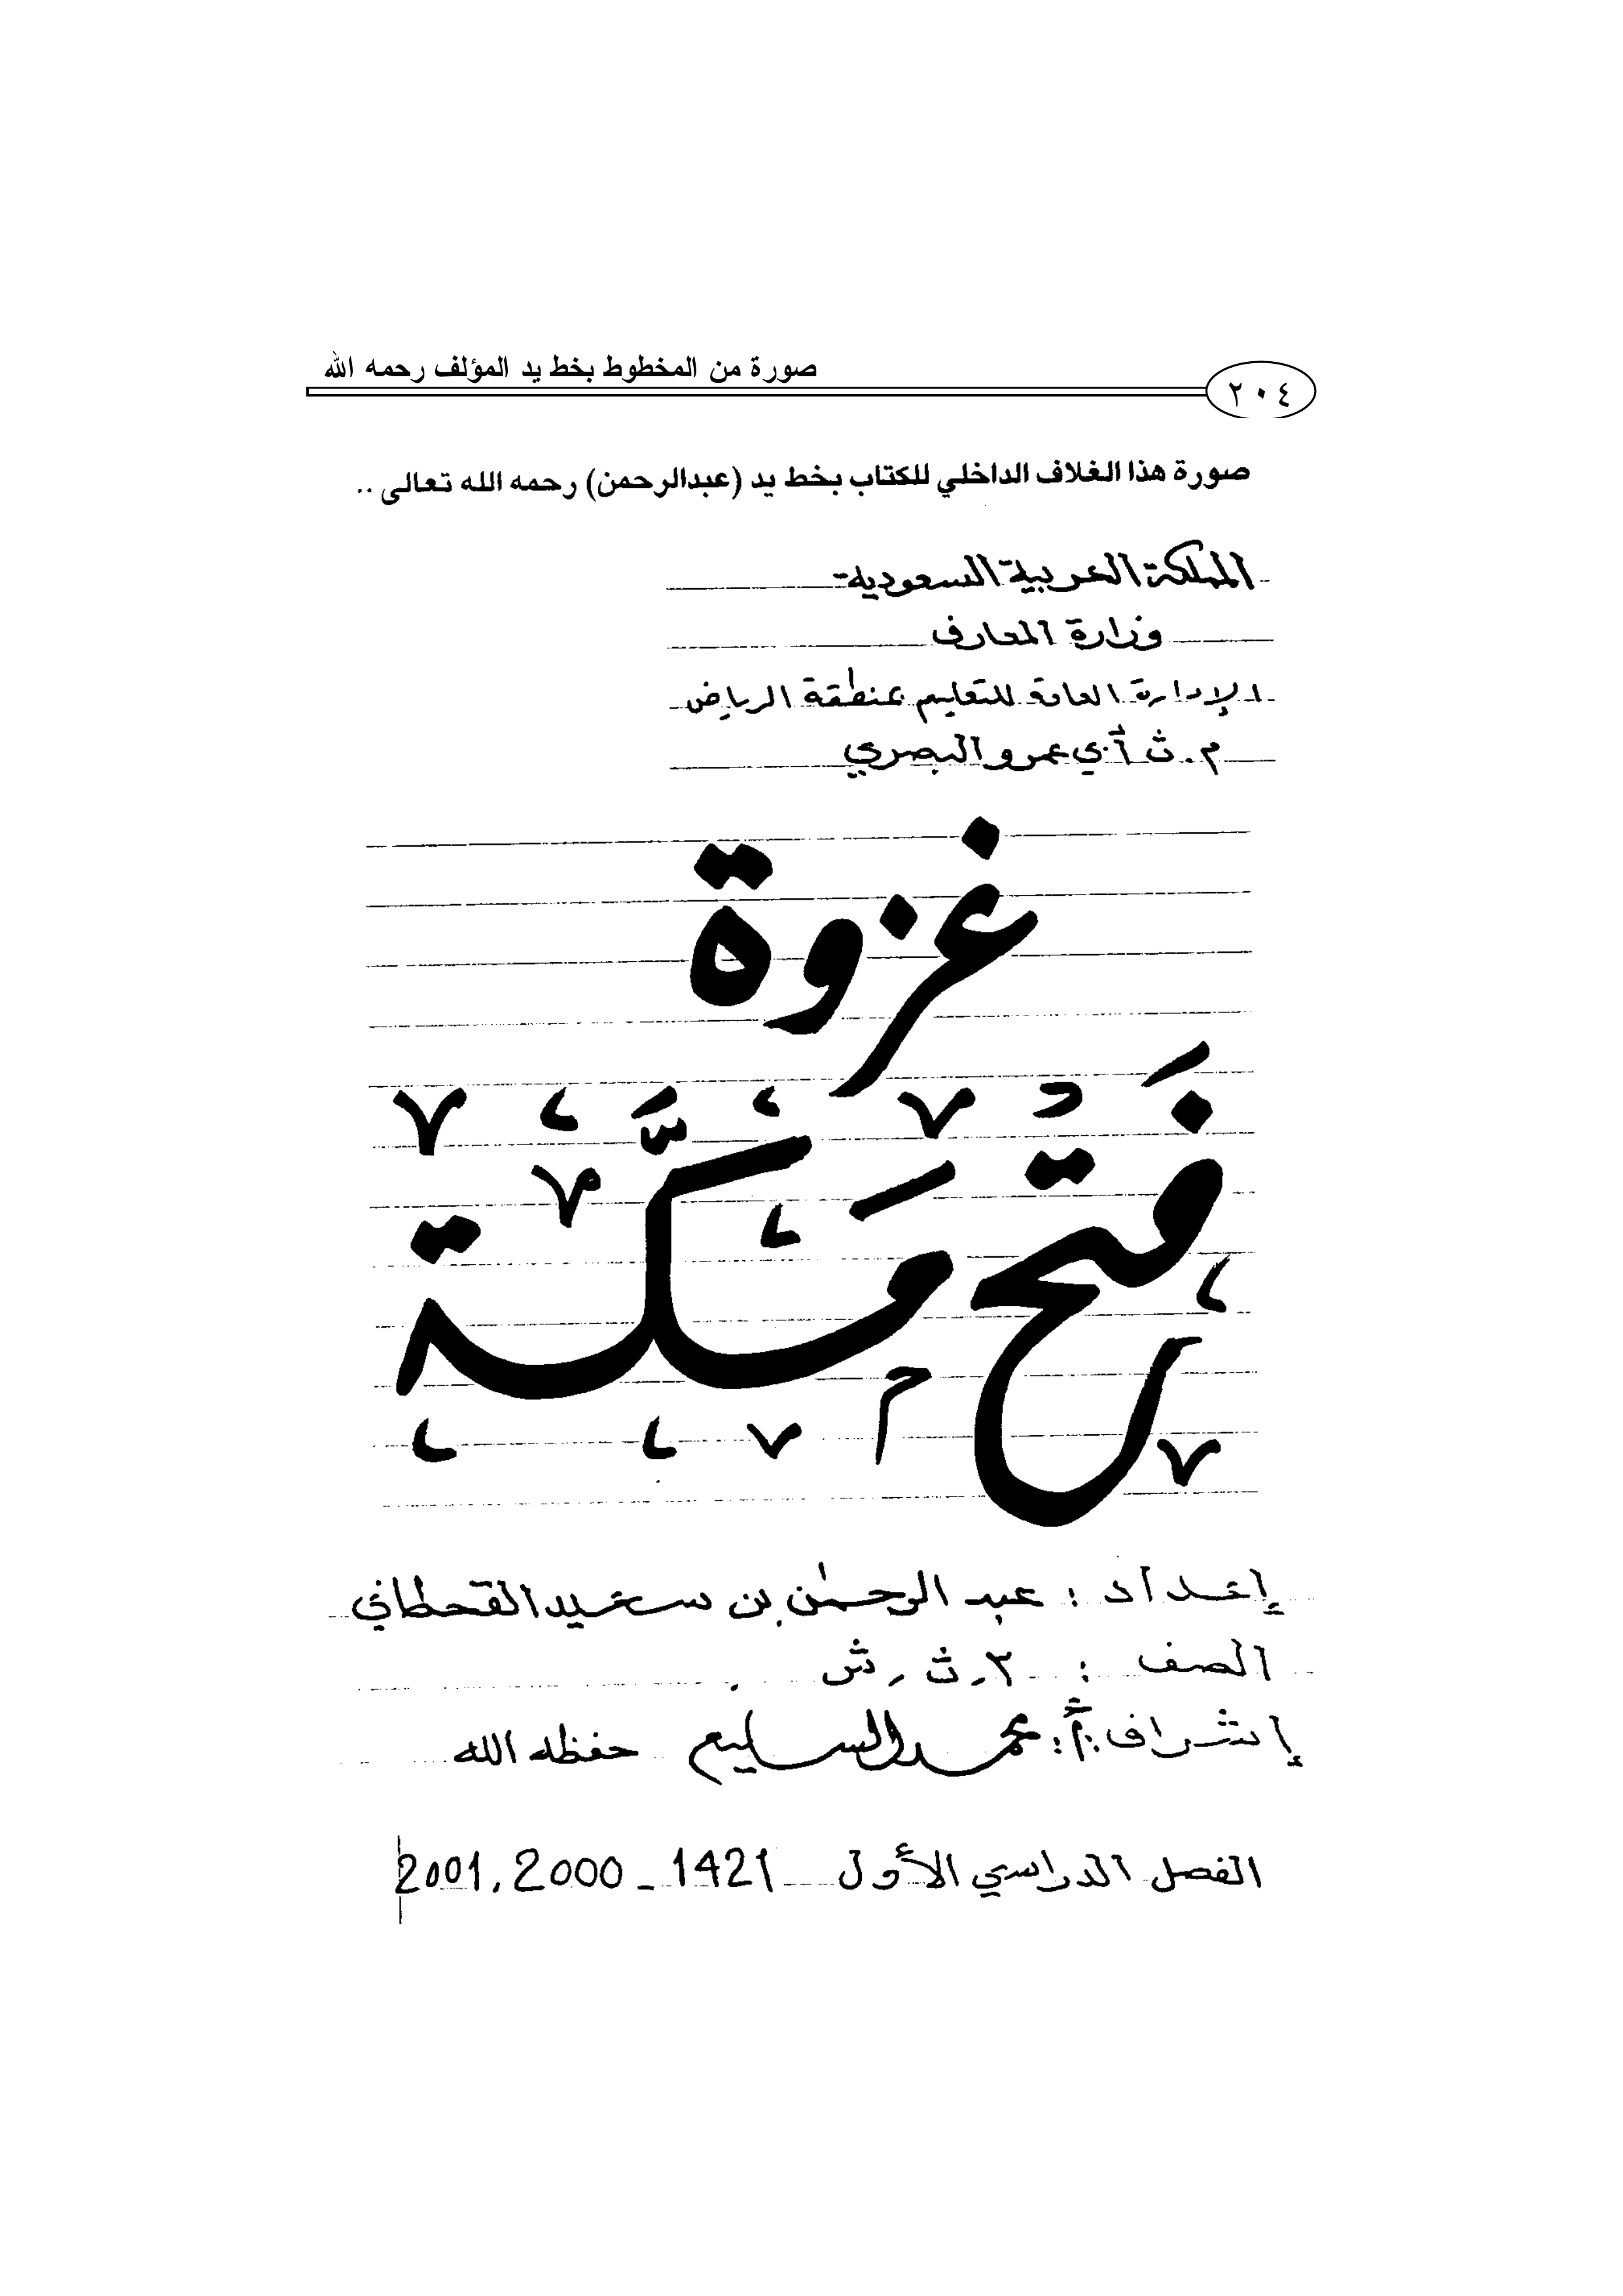 صورة من المخطوط بخط يد المؤلف رحمه الله
٢٠٤
صورة هذا الغلاف الداخلي للكتاب بخط يد (عبدالرحمن) رحمه الله تعالى ..
المملكة العربية السعودية
وزارة المعارف
الإدارة العامة للتعليم بمنطقة الرياض
م. ث أبي عمرو البصري
غزوة
فَتح مَكَّة
إعداد : عبد الرحمٰن بن سعيد القحطاني
الصف : ٣. ث. ش
إشراف أ: محمد السليم حفظه الله
الفصل الدراسي الأول 1421 - 2000, 2001